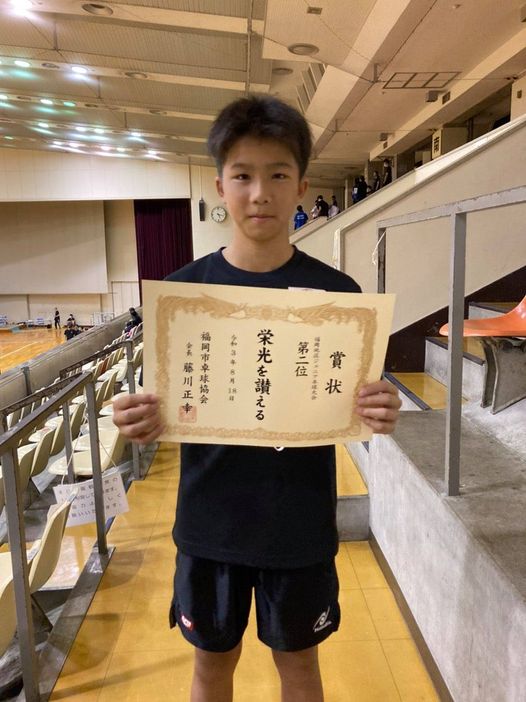 賞状
福岡地区ジュニア卓球大会
第二位
栄光を讃える
令和3年8月18日
福岡市卓球協会
会長 藤川正幸